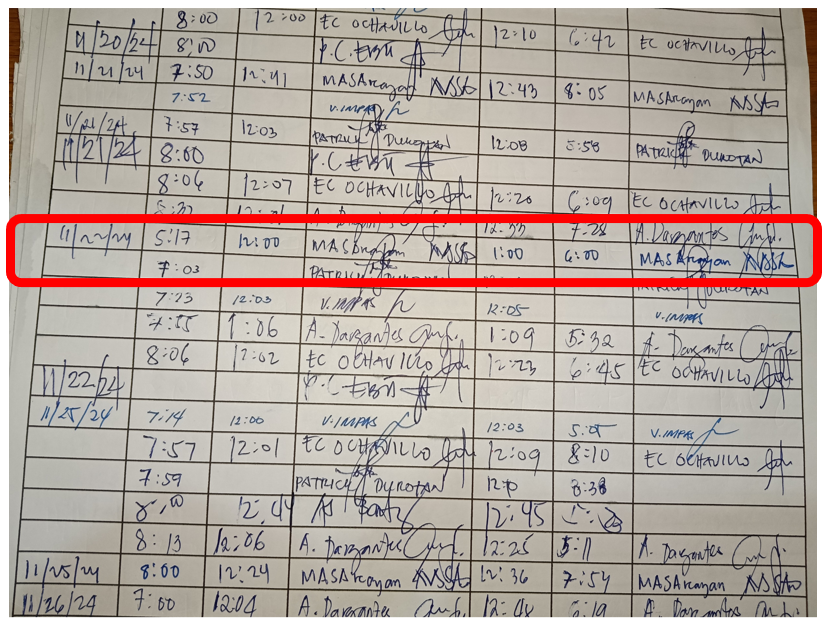 8:00 12:00 EC OCHAVILLO 12:10 6:42 EC OCHAVILLO
11/20/24 8:00 P.C. EBU
11/21/24 7:50 12:41 MASArcayan 12:43 8:05 MASArcayan
7:52 V. IMPAS
11/21/24 7:57 12:03 PATRICK DUROTAN 12:08 5:58 PATRICK DUROTAN
11/21/24 8:00 P.C EBU
8:06 12:07 EC OCHAVILLO 12:20 6:09 EC OCHAVILLO
A. Dargantes 12:33 7:28 A. Dargantes
11/22/24 5:17 12:00 MASArcayan 1:00 6:00 MASArcayan
7:03 PATRICK DUROTAN PATRICK DUROTAN
7:13 12:03 V. IMPAS 12:05 V. IMPAS
7:55 1:06 A. Dargantes 1:09 5:32 A. Dargantes
8:06 12:02 EC OCHAVILLO 12:23 6:45 EC OCHAVILLO
11/22/24 P.C EBU
11/25/24 7:14 12:00 V. IMPAS 12:03 V. IMPAS
7:57 12:01 EC OCHAVILLO 12:09 8:10 EC OCHAVILLO
7:59 PATRICK DUROTAN 8:38
12:44 12:45
8:13 12:06 A. Dargantes 12:25 5:11 A. Dargantes
11/25/24 8:00 12:24 MASArcayan 12:36 7:54 MASArcayan
11/26/24 7:00 12:04 A. Dargantes 6:19 A. Dargantes